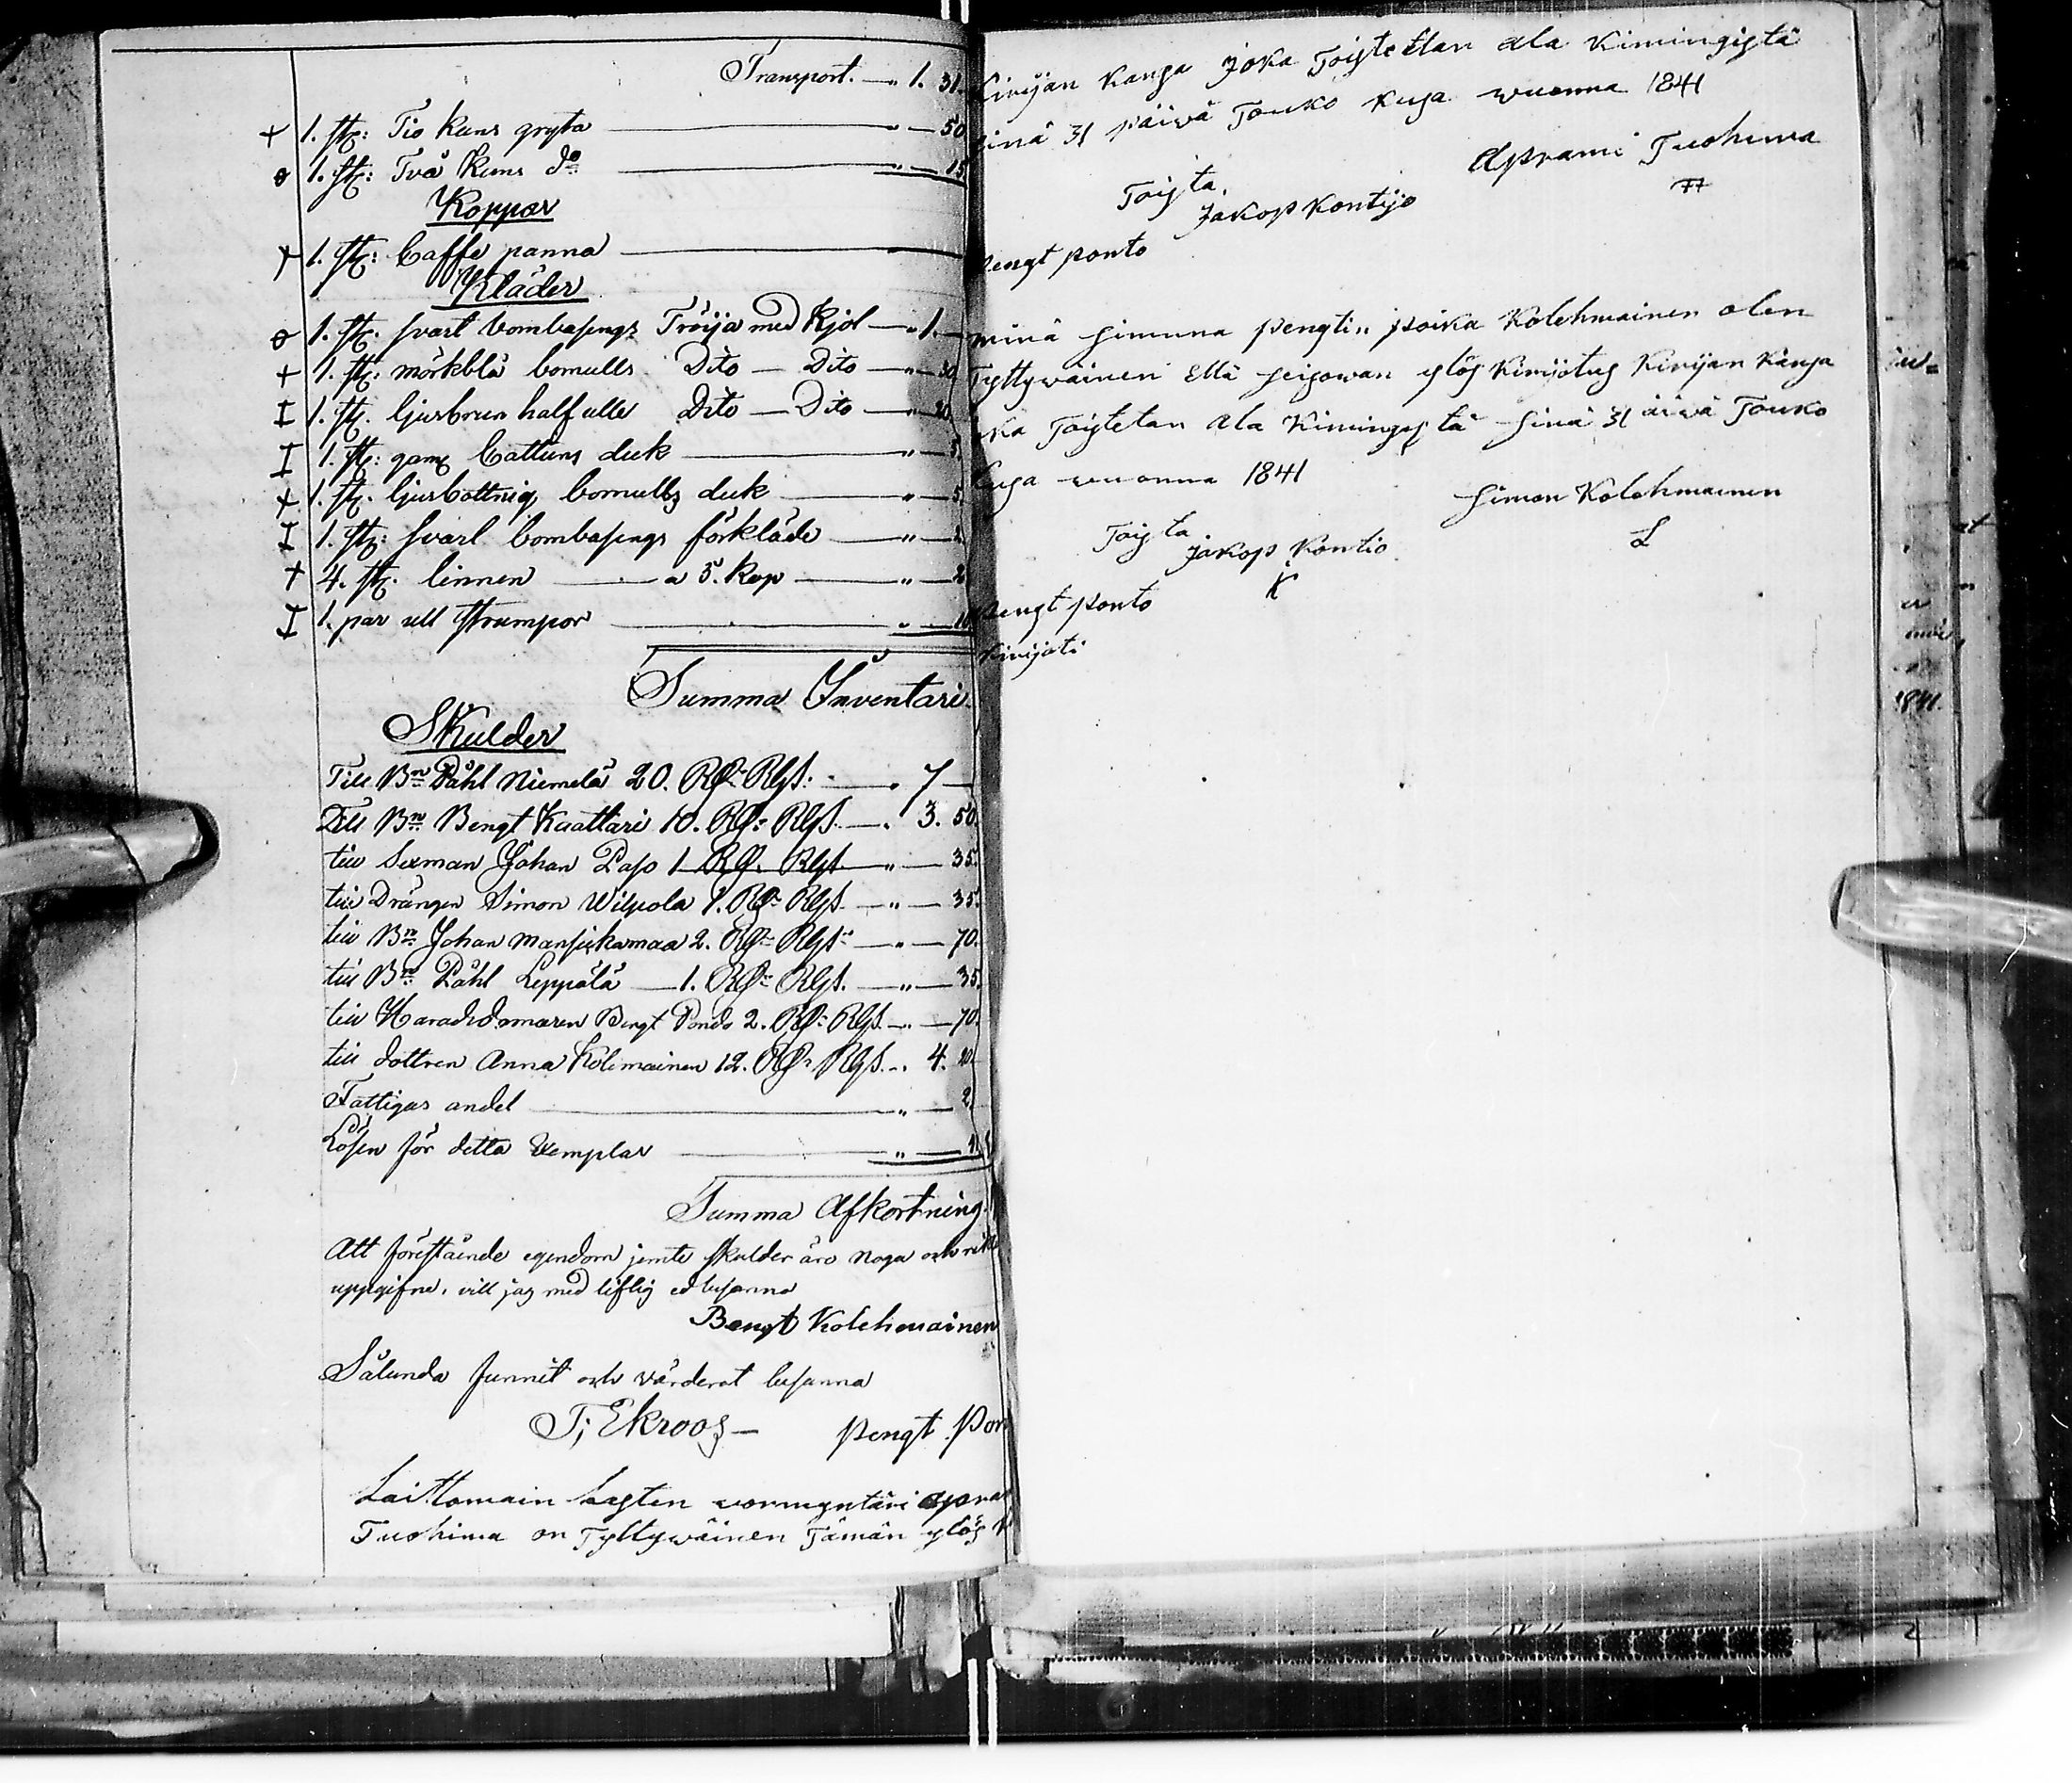 Transport. — „ 1. 31.
+ 1. st: Tio Kans gryta — „ — 50
o 1. st: Två Kans do — „ — 15
Koppar
+ 1. st: Caffe panna —
Kläder
o 1. st: svart bombasings Tröija med Kjol — „ 1. —
+ 1. st: mörkblå bomulls Dito — Dito — „ — 30
I 1. st. ljusbrun halfulle Dito — Dito — „ — 20
I 1. st: gam Cattuns duk — „ — 5.
+ 1. st. ljusbottnig bomulls duk — „ — 5.
I 1. st: svart bombasings förkläde — „ — 2
+ 4. st. linnen — a 5. Kop — „ — 2
I 1. par ull strumpor — „ — 10
Summa Inventari
Skulder
Till Bn Påhl Niemelä 20. RD Rgs. — . 7 —
Till Bn Bengt Kaattari 10. RD Rgs. — . 3. 50.
till Sexman Johan Paso 1 RD. Rgs — „ — 35.
till Drängen Simon Wilpola 1. RD Rgs. — „ — 35.
till Bn Johan Mansikamaa 2. RD Rgs — „ — 70.
till Bn Påhl Leppälä — 1. RD Rgs. — „ — 35.
till Häradsdomaren Bengt Pondo 2. RD Rgs. — „ — 70.
till dottren Anna Kolemainen 12. RD Rgs. — . 4. 20.
Fattigas andel — „ — 2.
Lösen för detta Exemplar — „ —
Summa Afkortning
Att förestående egendom jemte skulder äro noga och
uppgifne, vill jag med liflig ed besanna
Bengt Kolehmainen
Sålunda funnit och värderat besanna
T, Ekroos — pengt Pon
Laittomain lasten wormyntäri apra
Tuohima on Tyttywäinen Tämän ylös K
Kirijan Kansa Joka Toistetan ala Kimingistä
sinä 31 päiwä Touko Kusa wuonna 1841
Aprami Tuohima
Toista,
Jakop Kontijo
Pengt ponto
minä simuna pengtin poika Kolehmainen olen
Tyttywäinen Että seisowan ylös Kirijotus Kirijan Kansa
oka Toistetan ala Kimingistä sinä 31 äiwä Touko
Kuja wuonna 1841
simon Kolehmainen
Toista
Jakop Kontio
K
Pengt ponto
Kirijoti
1841.